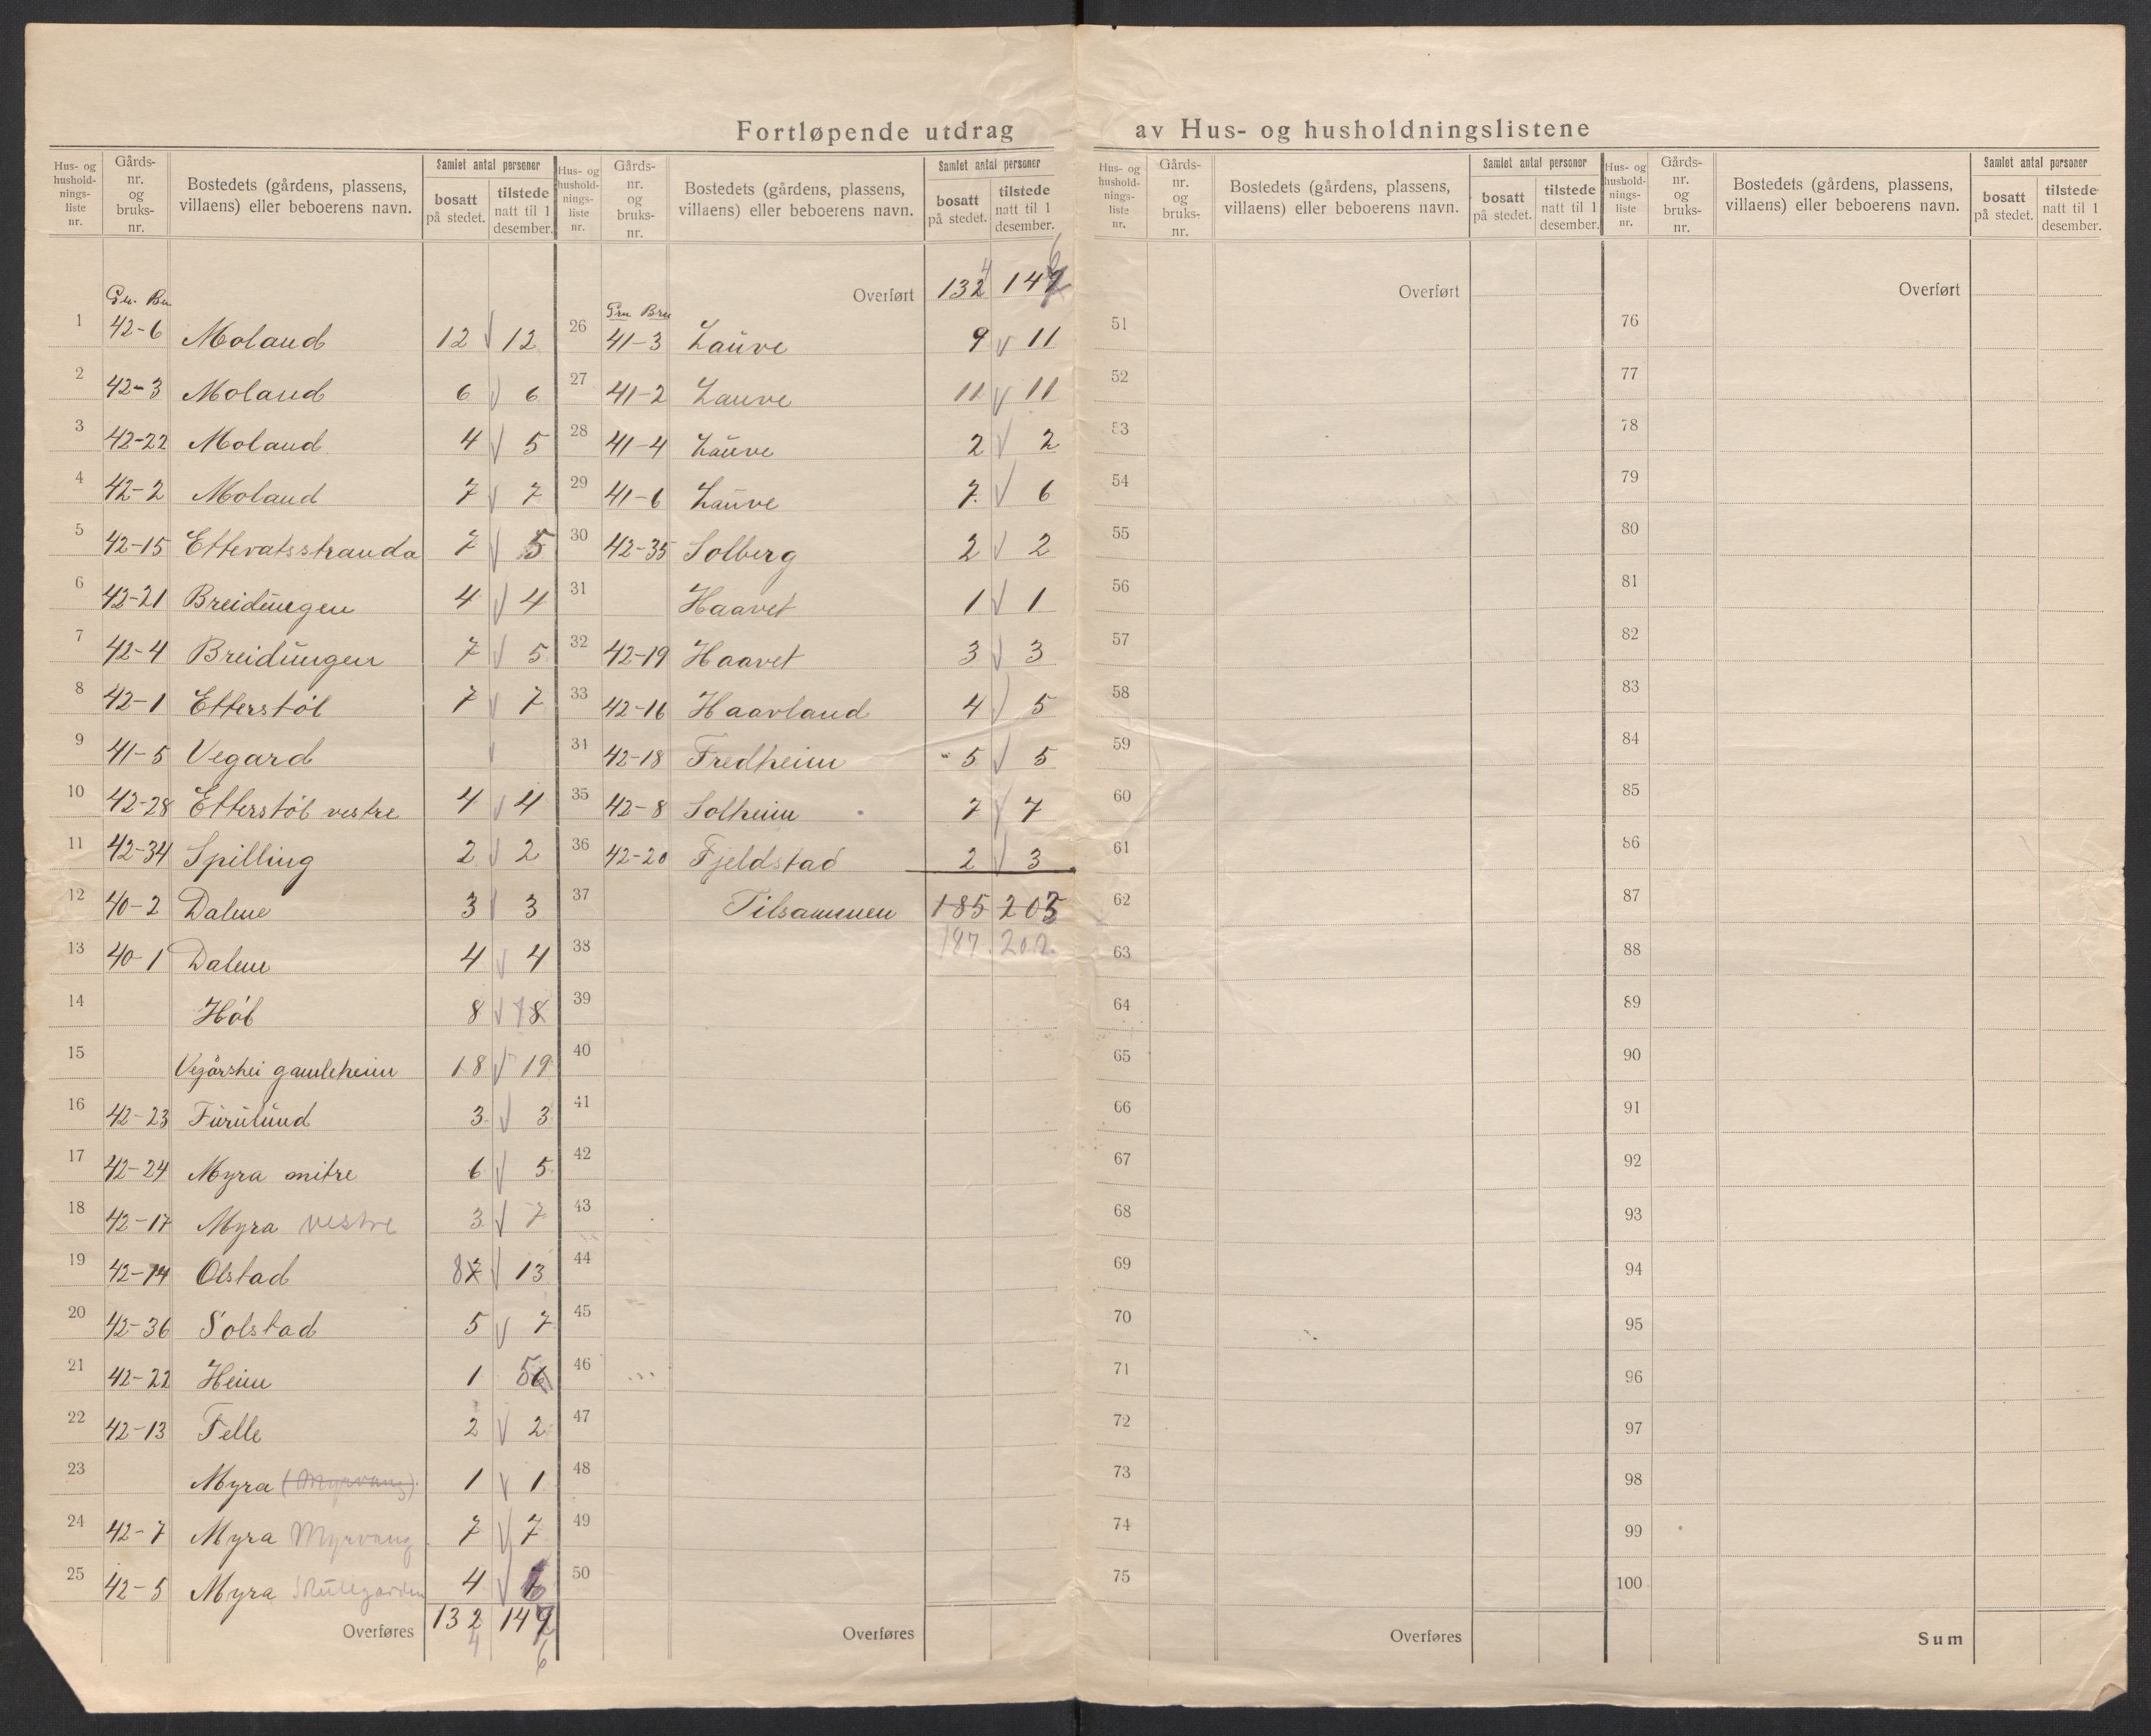 Fortløpende utdrag av Hus- og husholdningslistene
Hus- og hushold-nings-liste nr. Gårds-nr. og bruks-nr. Bostedets (gårdens, plassens, villaens) eller beboerens navn. Samlet antal personer bosatt på stedet. tilstede natt til 1 desember.
Gn. Bn.
1 42-6 Moland 12 √ 12
2 42-3 Moland 6 √ 6
3 42-22 Moland 4 √ 5
4 42-2 Moland 7 √ 7
5 42-15 Ettevatsstranda 7 √ 5
6 42-21 Breidungen 4 √ 4
7 42-4 Breidungen 7 √ 5
8 42-1 Etterstøl 7 √ 7
9 41-5 Vegard √
10 42-28 Etterstøl vestre 4 √ 4
11 42-34 Spilling 2 √ 2
12 40-2 Dalene 3 √ 3
13 40-1 Dalene 4 √ 4
14 Høl 8 √ 7 8
15 Vegårshei gamleheim 18 √ 19
16 42-23 Furulund 3 √ 3
17 42-24 Myra mitre 6 √ 5
18 42-17 Myra vestre 3 √ 7
19 42-14 Olstad 8 7 √ 13
20 42-36 Solstad 5 √ 7
21 42-22 Heim 1 5 6
22 42-13 Felle 2 √ 2
23 Myra (Myrvang) 1 √ 1
24 42-7 Myra Myrvang 7 √ 7
25 42-5 Myra Skulegarden 4 √
Overføres 132 147
4 6
Hus- og hushold-nings-liste nr. Gårds-nr. og bruks-nr. Bostedets (gårdens, plassens, villaens) eller beboerens navn. Samlet antal personer bosatt på stedet. tilstede natt til 1 desember.
4 6
Overført 132 147
Gnr Bnr
26 41-3 Lauve 9 √ 11
27 41-2 Lauve 11 √ 11
28 41-4 Lauve 2 √ 2
29 41-6 Lauve 7 √ 6
30 42-35 Solberg 2 √ 2
31 Haavet 1 √ 1
32 42-19 Haavet 3 √ 3
33 42-16 Haavland 4 √ 5
31 42-18 Fredheim 5 √ 5
35 42-8 Solheim 7 √ 7
36 42-20 Fjeldstad 2 √ 3
37 Tilsammen 185 203
38 187. 202.
39
40
41
42
43
44
45
46
47
48
49
50
Overføres
Hus- og hushold-nings-liste nr. Gårds-nr. og bruks-nr. Bostedets (gårdens, plassens, villaens) eller beboerens navn. Samlet antal personer bosatt på stedet. tilstede natt til 1 desember.
Overført
51
52
53
54
55
56
57
58
59
60
61
62
63
64
65
66
67
68
69
70
71
72
73
74
75
Overføres
Hus- og hushold-nings-liste nr. Gårds-nr. og bruks-nr. Bostedets (gårdens, plassens, villaens) eller beboerens navn. Samlet antal personer bosatt på stedet. tilstede natt til 1 desember.
Overført
76
77
78
79
80
81
82
83
84
85
86
87
88
89
90
91
92
93
94
95
96
97
98
99
100
Sum